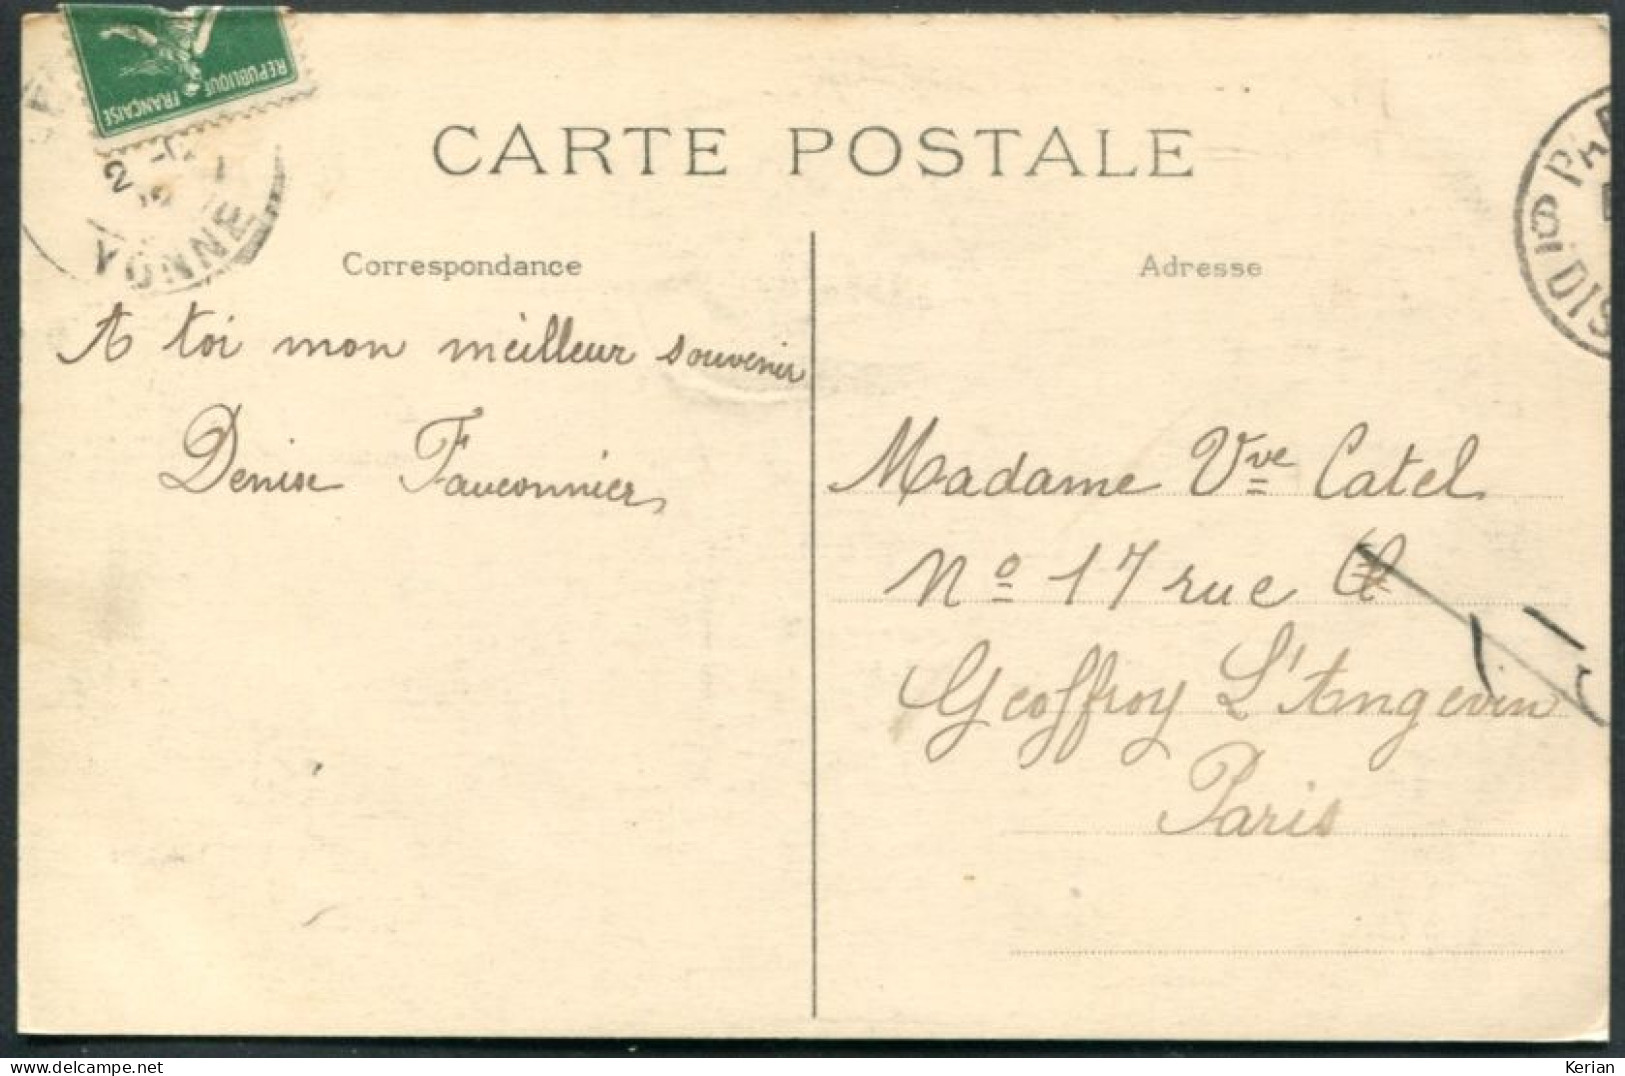 REPUBLIQUE FRANÇAISE
YONNE
CARTE POSTALE
Correspondance
A toi mon meilleur souvenir
Denise Fauconnier
Adresse
Madame Vve Catel
No 17 rue
Geoffroy L'Angevin
Paris
delcampe.net
Kerian